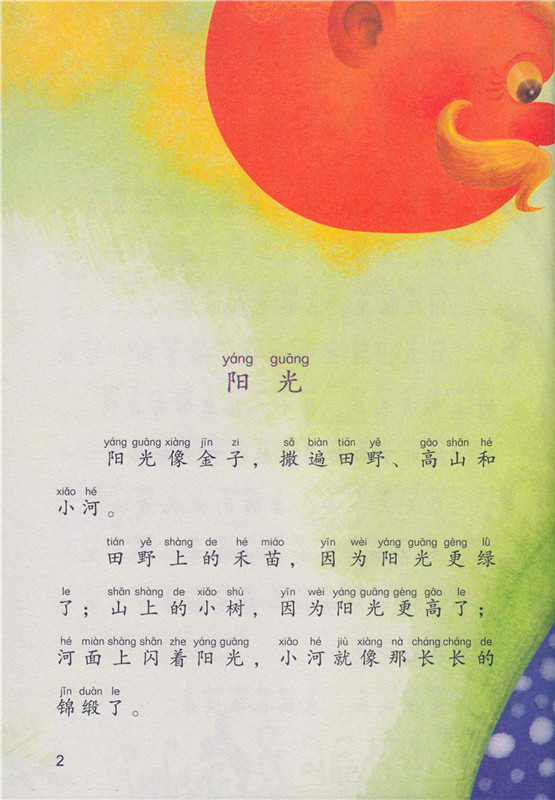 yáng guāng
阳 光
yáng guāng xiàng jīn zi sǎ biàn tián yě gāo shān hé
阳光像金子，撒遍田野、高山和
xiǎo hé
小河。
tián yě shàng de hé miáo yīn wèi yáng guāng gèng lǜ
田野上的禾苗，因为阳光更绿
le shān shàng de xiǎo shù yīn wèi yáng guāng gèng gāo le
了；山上的小树，因为阳光更高了；
hé miàn shàng shǎn zhe yáng guāng xiǎo hé jiù xiàng nà cháng cháng de
河面上闪着阳光，小河就像那长长的
jǐn duàn le
锦缎了。
2